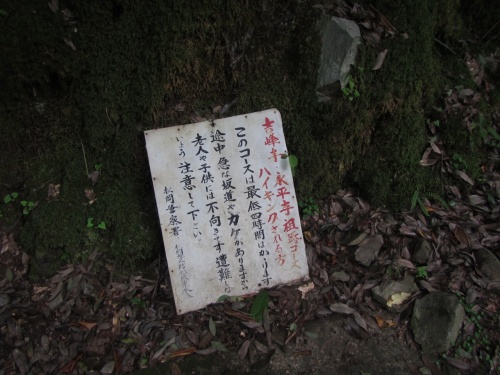 吉峰寺・永平寺祖跡コース
ハイキングされる方
このコースは最低四時間はかかります
途中急な坂道やガケがありますから
老人や子供には不向きです遭難しな
いよう注意して下さい
松岡警察署